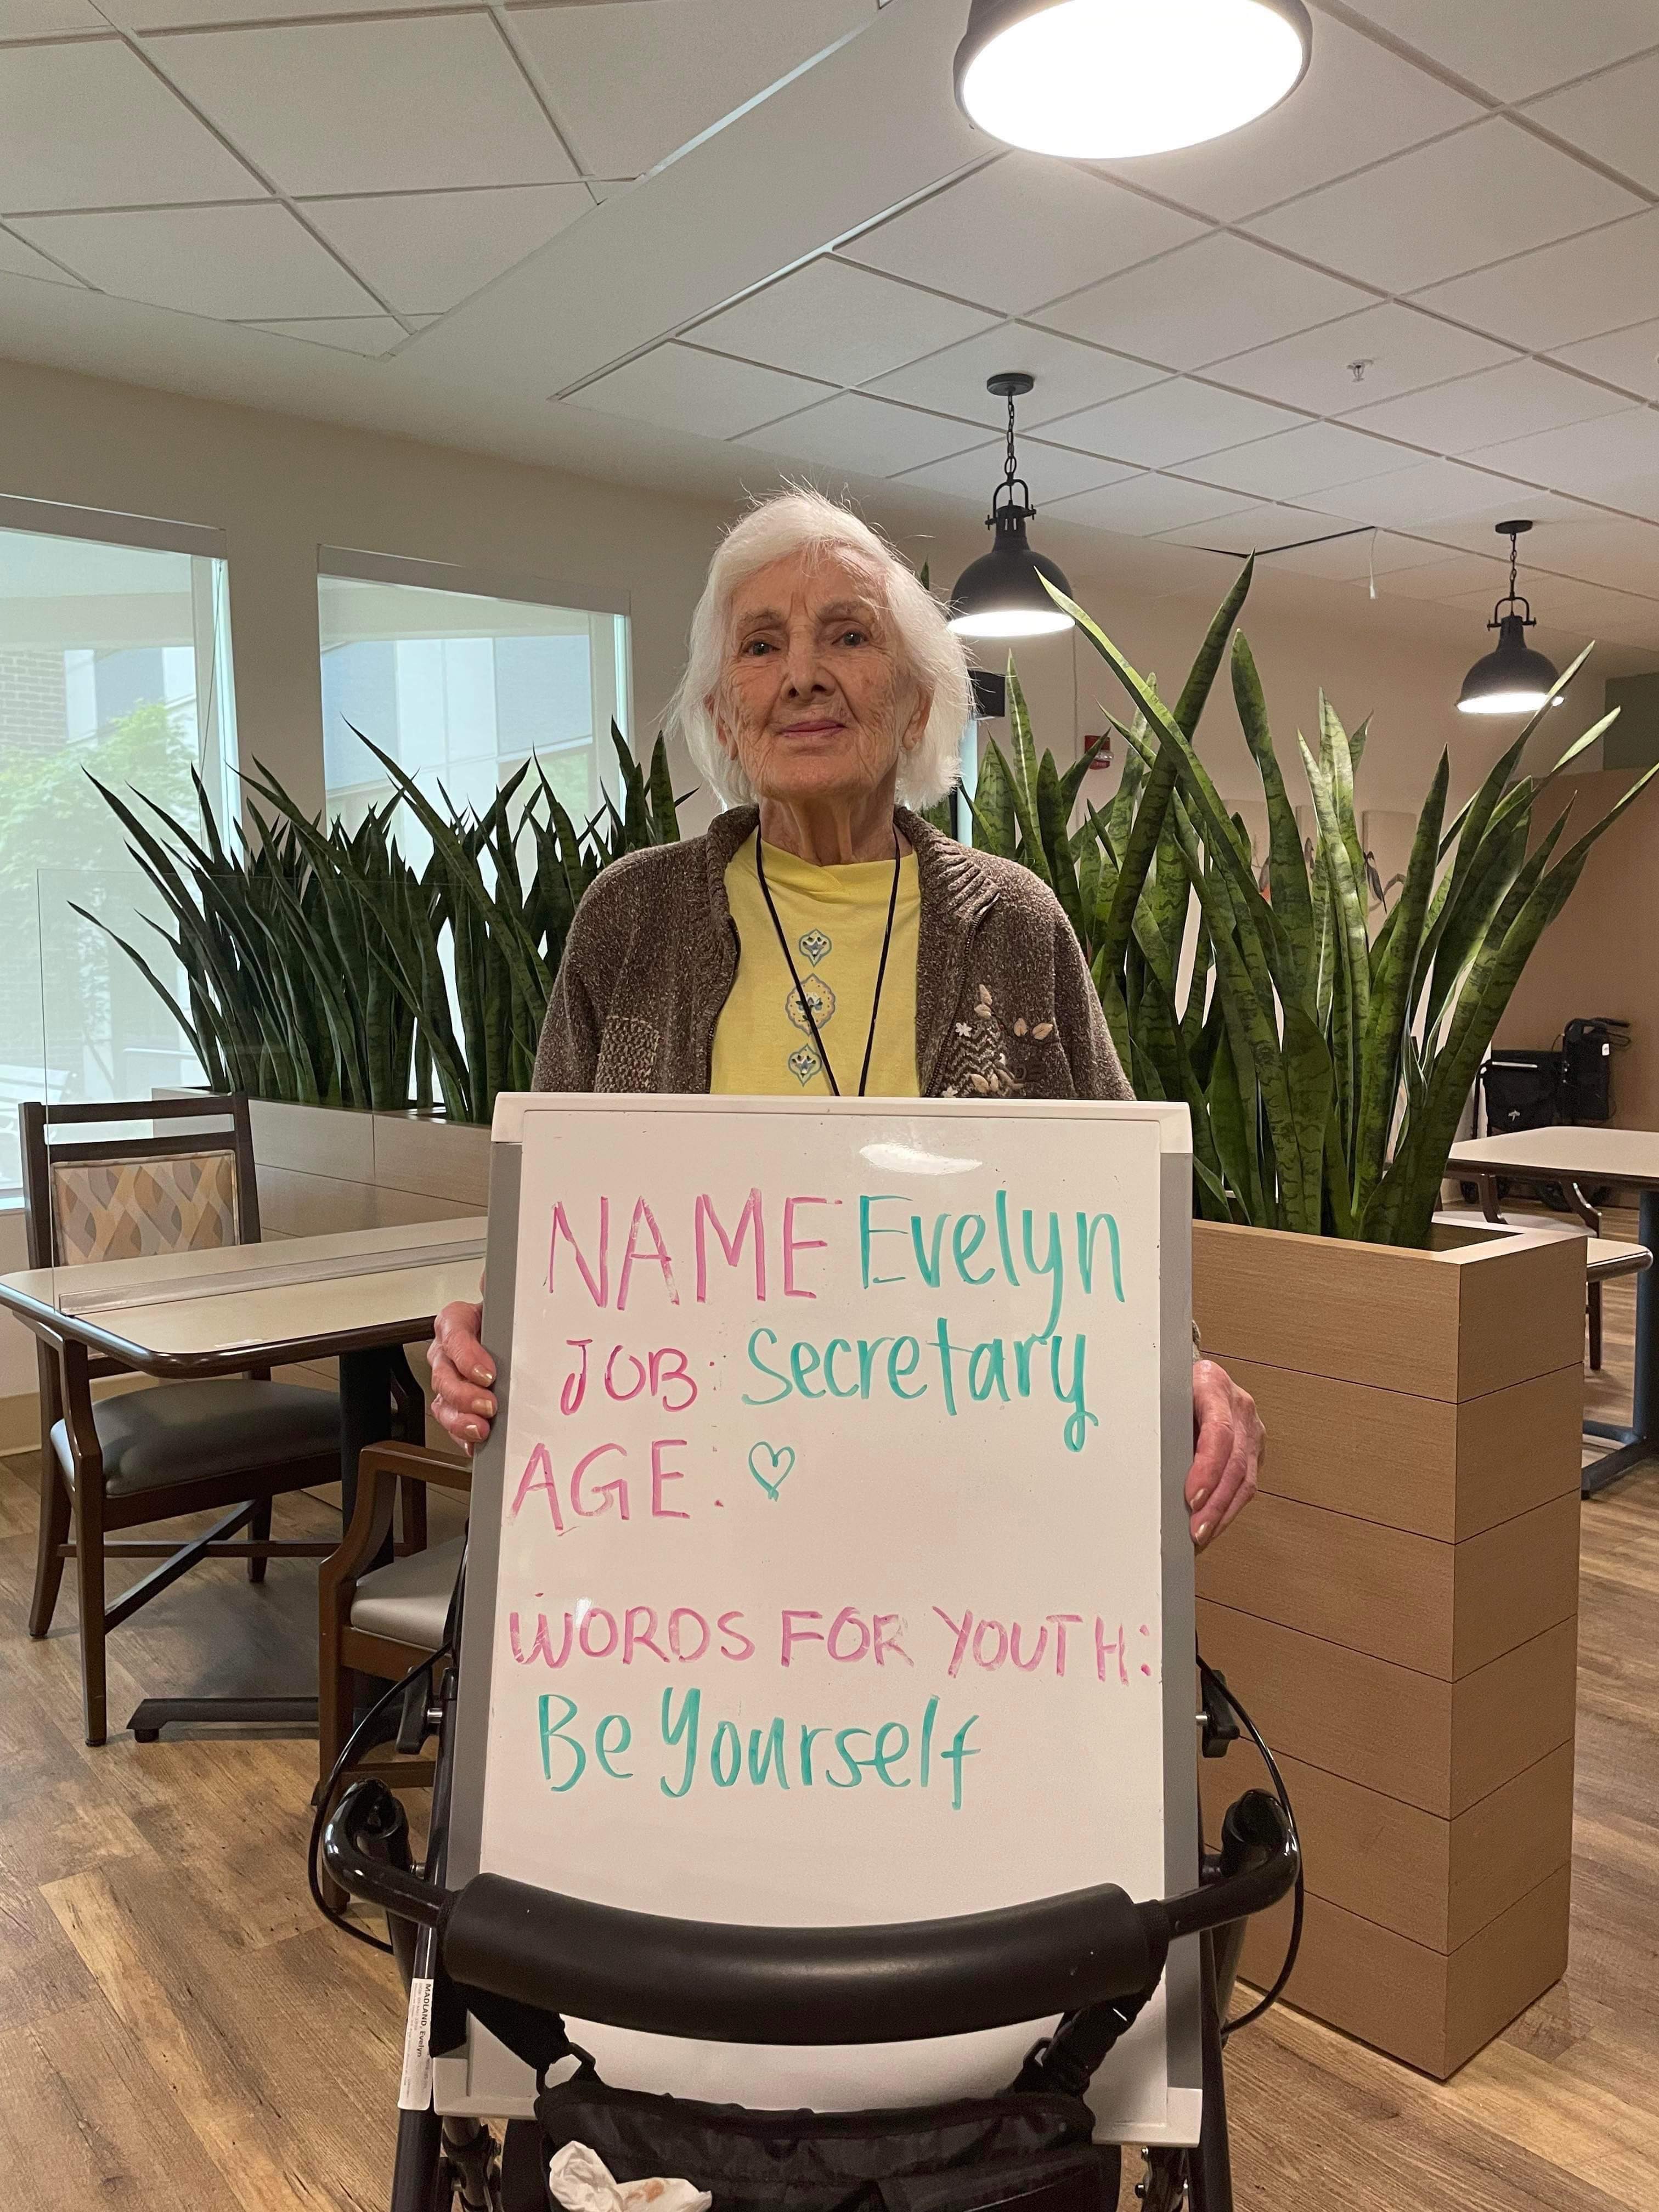 NAME Evelyn
JOB: Secretary
AGE: ♡
WORDS FOR YOUTH:
Be Yourself
MADLAND, Evelyn